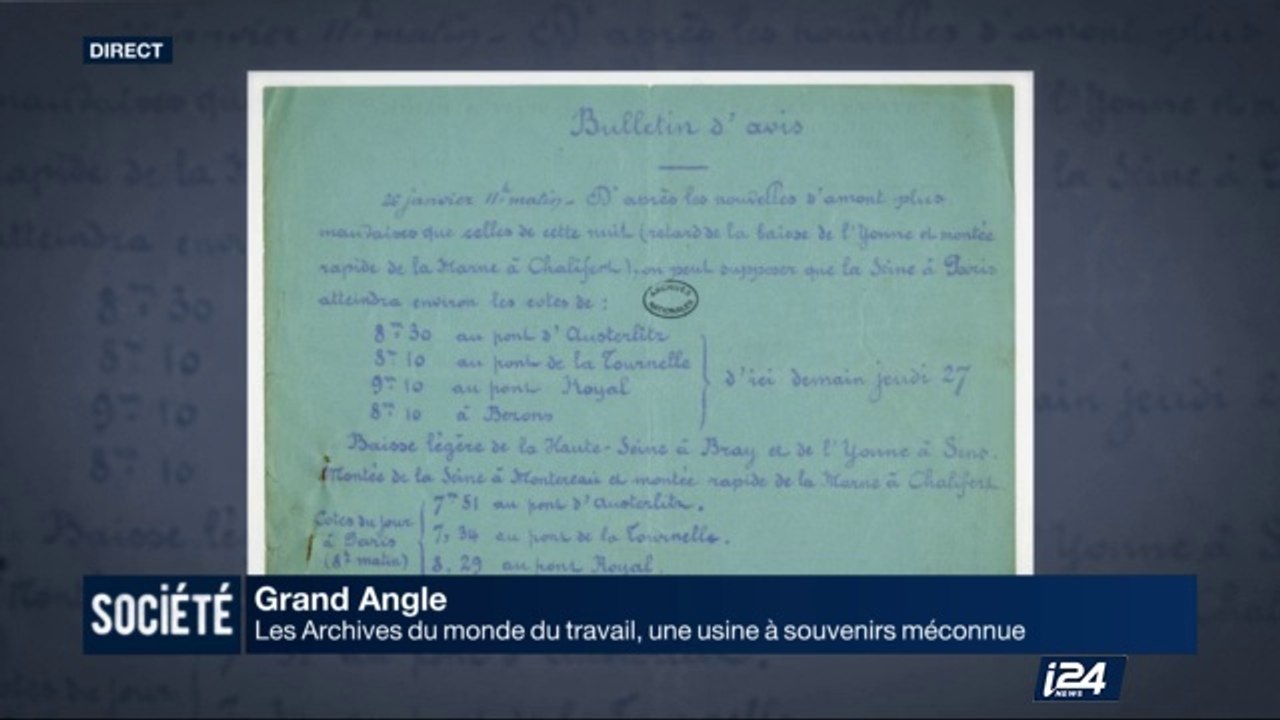 DIRECT
Bulletin d'avis
26 janvier 11h matin - D'après les nouvelles d'amont plus
mauvaises que celles de cette nuit (retard de la baisse de l'Yonne et montée
rapide de la Marne à Chalifert), on peut supposer que la Seine à Paris
atteindra environ les cotes de :
ARCHIVES NATIONALES
8m 30 au pont d'Austerlitz
8m 10 au pont de la Tournelle
9m 10 au pont Royal
8m 10 à Bezons
d'ici demain jeudi 27
Baisse légère de la Haute-Seine à Bray et de l'Yonne à Sens.
Montée de la Seine à Montereau et montée rapide de la Marne à Chalifert
Cotes du jour
à Paris
(8h matin)
7m 51 au pont d'Austerlitz.
7, 34 au pont de la Tournelle.
8, 29 au pont Royal.
SOCIÉTÉ
Grand Angle
Les Archives du monde du travail, une usine à souvenirs méconnue
i24
NEWS